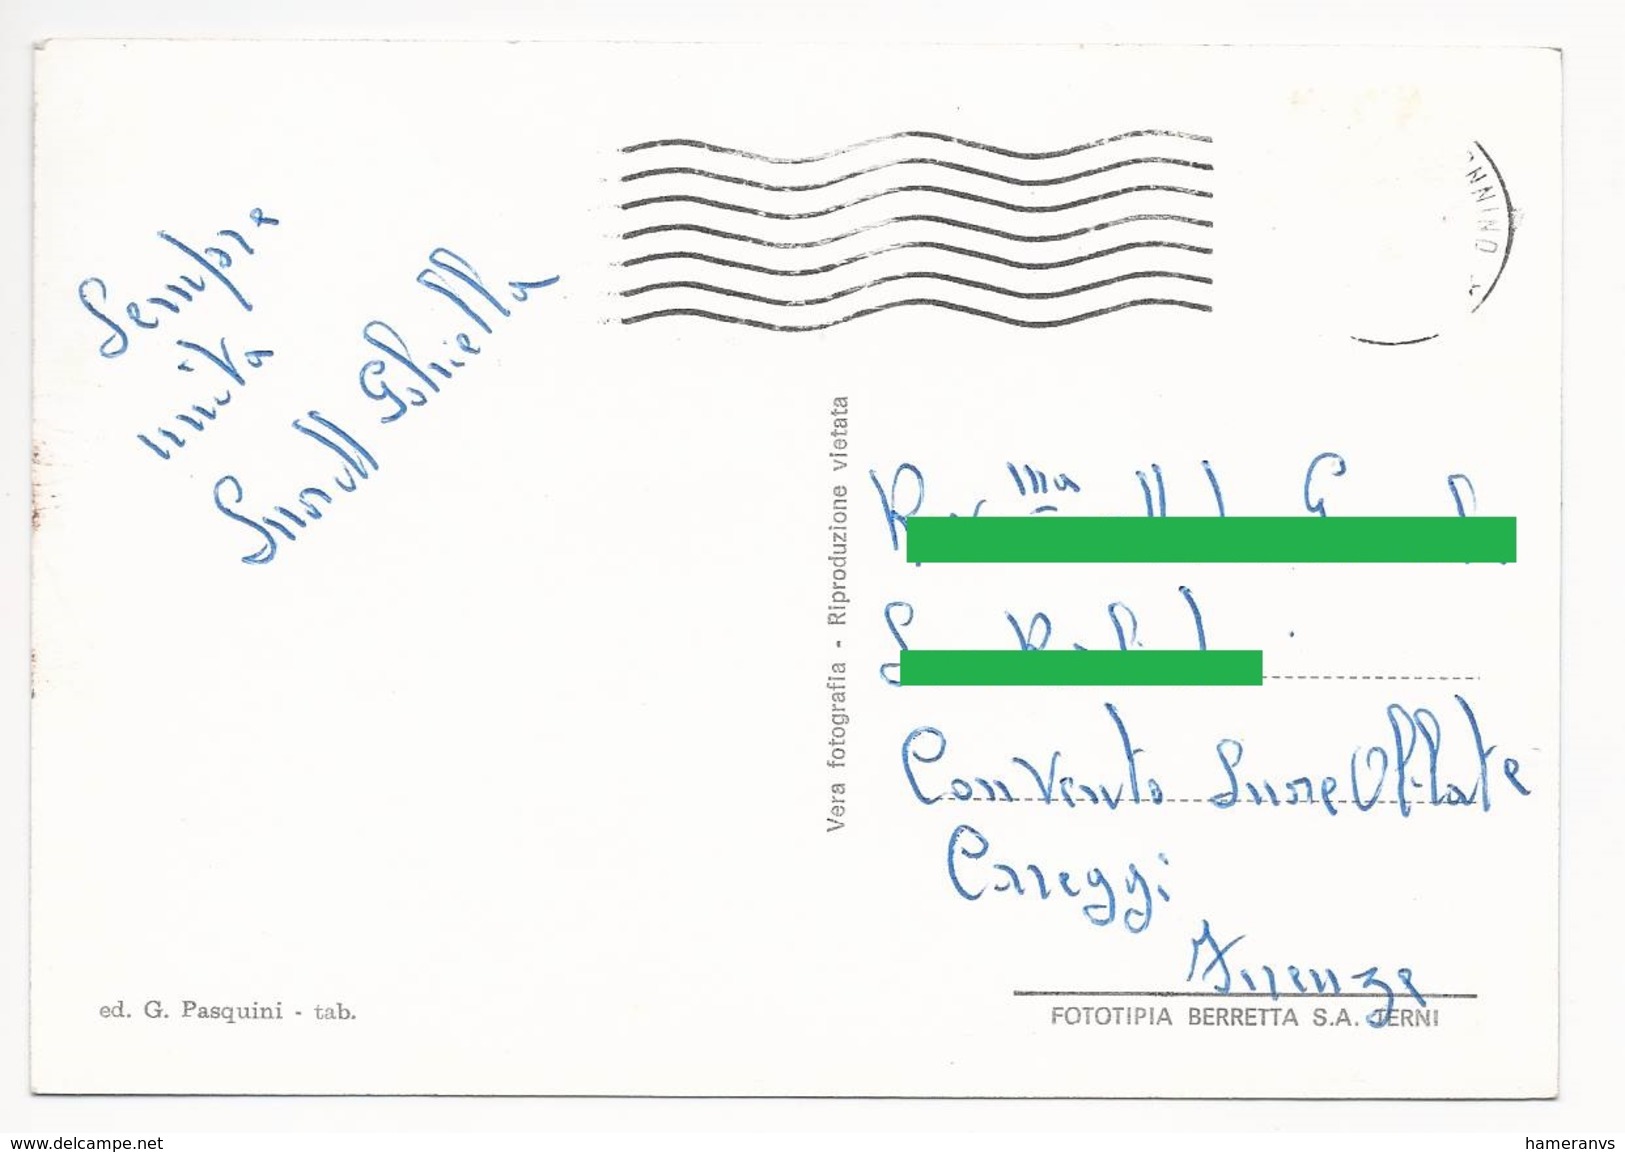 Sempre
unita
Suor M Ghiella
NNINO
Vera fotografia - Riproduzione vietata
Convento Suore Oblate
Careggi
Firenze
ed. G. Pasquini - tab.
FOTOTIPIA BERRETTA S.A. TERNI
www.delcampe.net
hameranvs